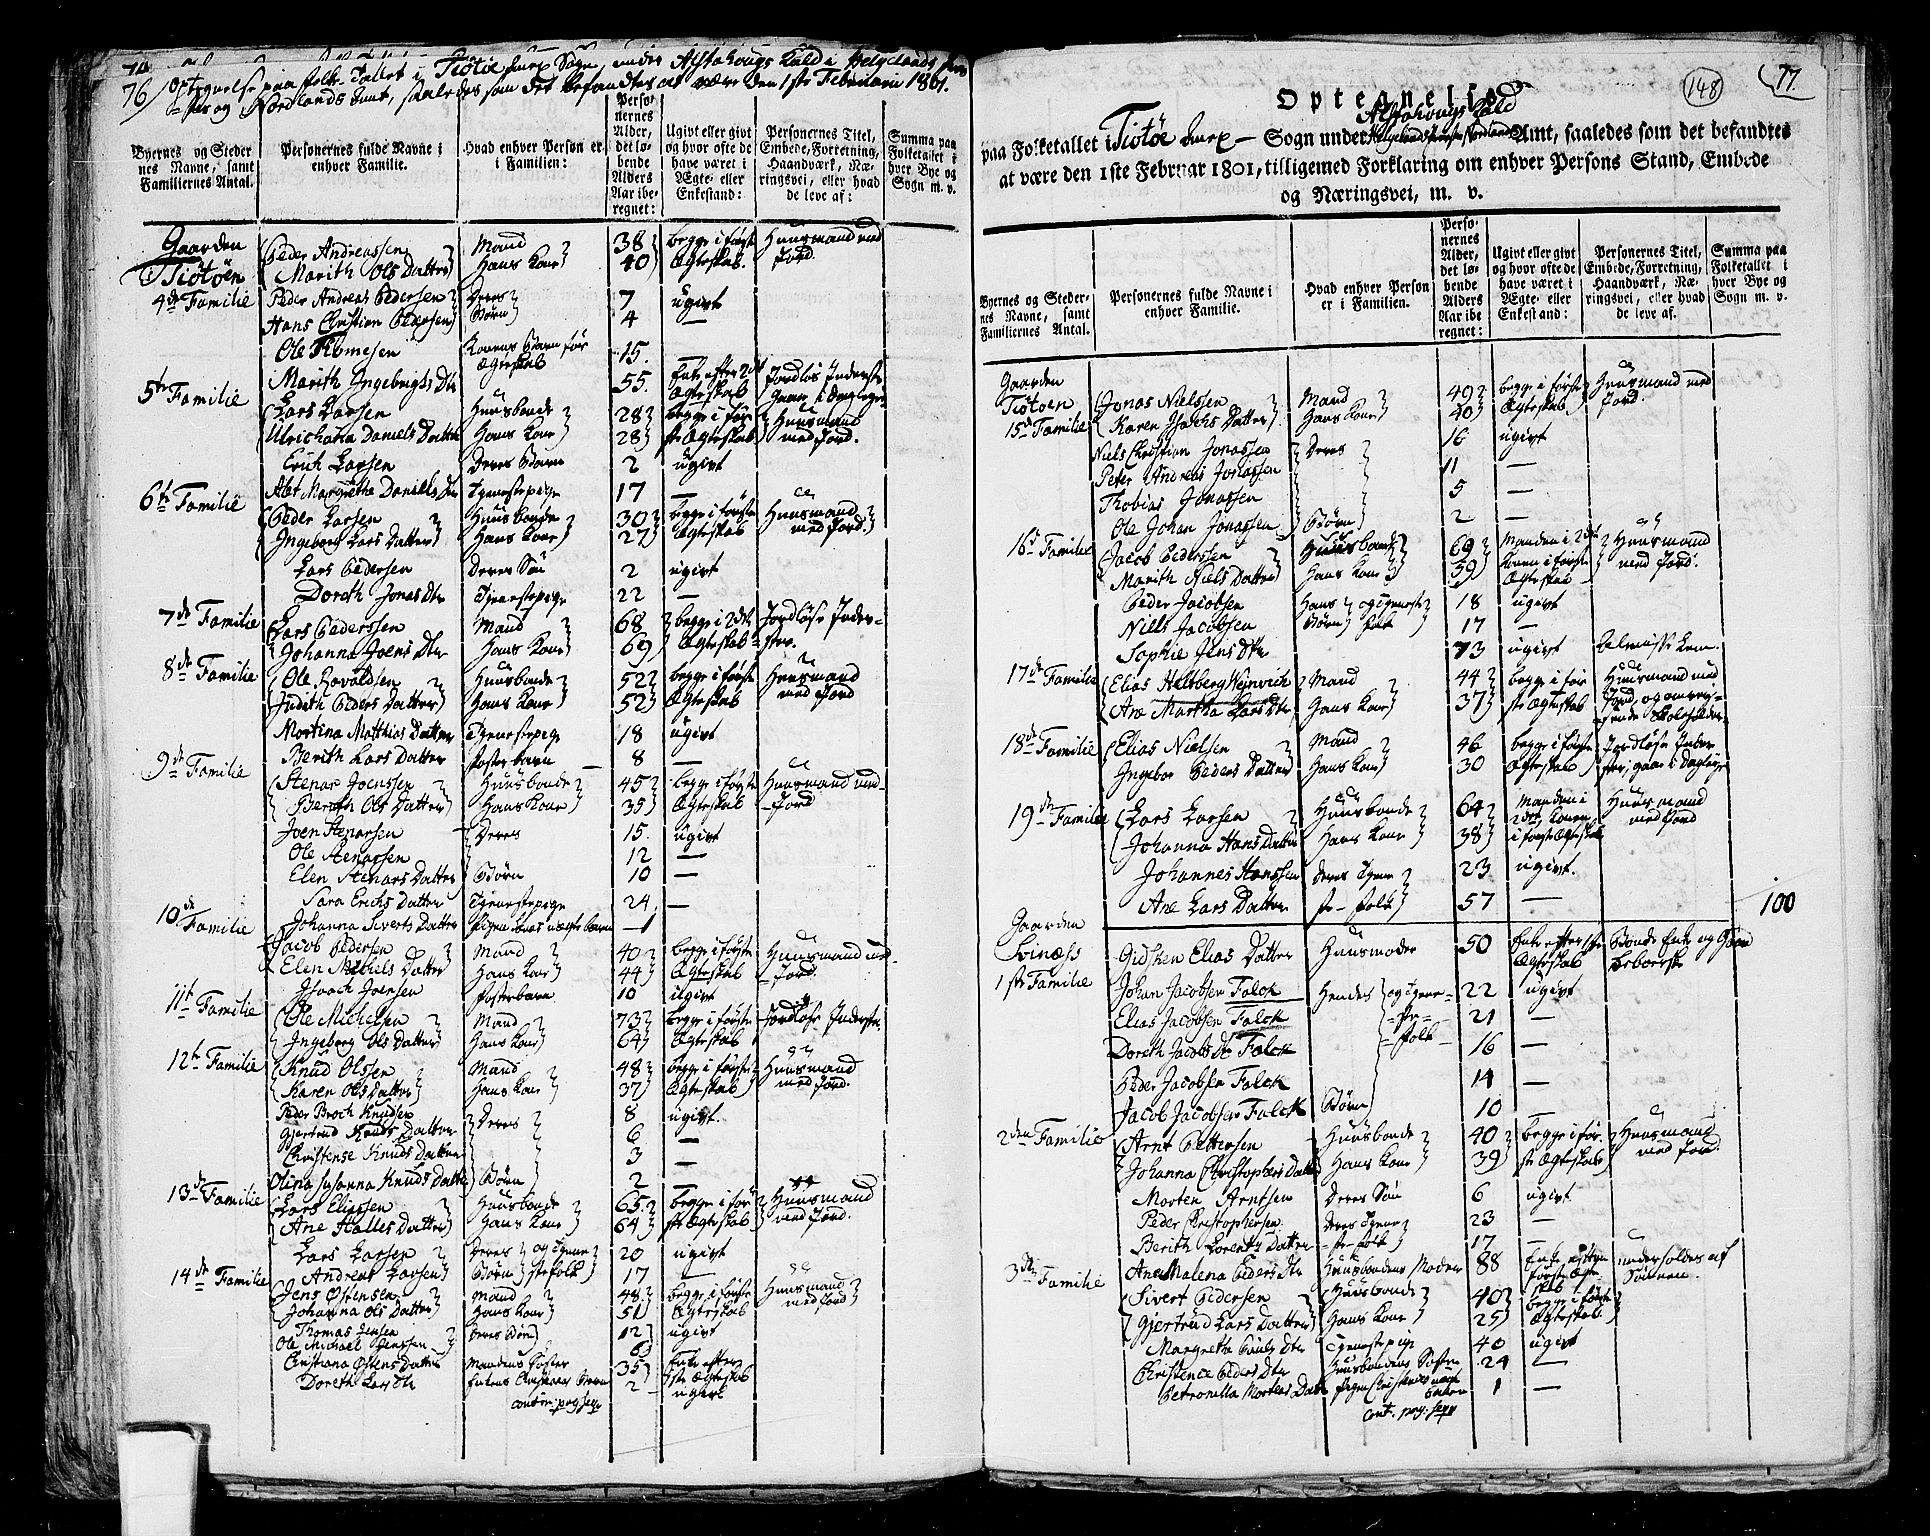 76
Optegnelse paa Folke Tallet i Tiøtøe Anex Sogn, under Alstahougs Kald i Helgelands
og Nordlands Amt, saaledes som det befandtes at være den 1ste Februarii 1801.
Byernes og Steder nes Navne, samt Familiernes Antal.
Personernes fulde Navne i enhver Familie.
Hvad enhver Person er i Familien:
Personernes Alder, det løbende Alders Aar iberegnet:
Ugivt eller givt og hvor ofte de have været i Ægte- eller Enkestand:
Personernes Titel, Embede, Forretning, Haandværk, Næringsvei, eller hvad de leve af:
Summa paa Folketallet i hver Bye og Sogn m. v.
Gaarden Peder Andreassen Mand 38 begge i første Huusmand med
Tiøtøen Marith Ols Datter Hans Kone 40 Ægteskab. Jord.
4de Familie Peder Andreas Pedersen Deres 7 ugivt
Hans Christian Pedersen Børn 4 —
Ole Thomesen Konens Barn før Ægteskab 15.
Marith Ingebrigts Dtr 55. Enke efter 2det Ægteskab Jordløs Inderste
5te Familie Lars Larsen Huusbonde 28 begge i før- Huusmand
Ulrichana Daniels Datter Hans Kone 28 ste Ægteskab med Jord.
Erich Larsen Deres Barn 2 ugivt
Abet Margrethe Daniels Dtr Tjenestepige 17 —
6te Familie Peder Larsen Huusbonde 30 begge i første Huusmand
Ingeborg Lars Datter Hans Kone 27 Ægteskab med Jord.
Lars Pedersen Deres Søn 2 ugivt
Doreth Jonas Dtr Tjenestepige 22 —
7de Familie Lars Pederssen Mand 68 begge i 2det Jordløse Inder-
Johanna Joens Dtr Hans Kone 69 Ægteskab ster.
8de Familie Ole Rovoldsen Huusbonde 52 begge i første Huusmand
Judith Peders Datter Hans Kone 52 Ægteskab med Jord
Martina Matthias Datter Tjenestepige 18 ugivt
Berith Lars Datter Fosterbarn 8 —
9de Familie Stenar Joenssen Huusbonde 45 begge i første Huusmand med
Berith Ols Datter Hans Kone 35 Ægteskab Jord
Joen Stenarsen Deres 15. ugivt
Ole Stenarsen 12 —
Elen Stenars Datter Børn 10 —
Sara Erichs Datter Tjenestepige 24 —
10de Familie Johanna Siverts Datter Pigen Saras uægte barn 1
Jacob Pedersen Mand 40 begge i første Huusmand med
Elen Michels Datter Hans Kone 44 Ægteskab Jord.
Isaach Joensen Fosterbarn 10 ugivt
11te Familie Ole Michelsen Mand 73 begge i første Jordløse Inderste
Ingeborg Ols Datter Hans Kone 64 Ægteskab
12te Familie Knud Olssen Mand 48 begge i første Huusmand
Karen Ols Datter Hans Kone 37 Ægteskab med Jord.
Peder Broch Knudsen Deres 8 ugivt.
Gjertrud Knuds Datter 6 —
Christense Knuds Datter 3 —
Olina Susanna Knuds Datter Børn 2 —
13de Familie Lars Eliassen Huusbonde 65 begge i før- Huusmand
Ane Halles Datter Hans Kone 64 ste Ægteskab med Jord.
Lars Larsen Deres og Tjene- 20 ugivt
Andreas Larsen Børn stefolk 17 —
14de Familie Jens Østensen Mand 48 begge i første Huusmand
Johanna Ols Datter Hans Kone 51 Ægteskab med Jord
Thomas Jensen Deres Børn 12 ugivt
Ole Michael Jenssen 6
Christiana Østens Datter Mandens Søster 35 Enke efter 1ste Ægteskab
Doreth Enkens Barn 2 ugivt
contin: pag: seqv
148
77.
Optegnelse
paa Folketallet i Tiøtøe Anex — Sogn under Alstahougs Kald Amt, saaledes som det befandtes
at være den 1ste Februar 1801, tilligemed Forklaring om enhver Persons Stand, Embede
og Næringsvei, m. v.
Byernes og Stedernes Navne, samt Familiernes Antal.
Personernes fulde Navne i enhver Familie.
Hvad enhver Person er i Familien.
Personernes Alder, det løbende Alders Aar iberegnet:
Ugivt eller givt og hvor ofte de have været i Ægte- eller Enkestand:
Personernes Titel, Embede, Forretning, Haandværk, Næringsvei, eller hvad de leve af.
Summa paa Folketallet i hver Bye og Sogn m. v.
Gaarden Tiøtøen Jonas Nielssen Mand 49 begge i første Huusmand med
15de Familie Karen Isachs Datter Hans Kone 40 Ægteskab Jord.
Niels Christian Jonassen Deres 16 ugivt
Peter Andreas Jonassen 11 —
Thobias Jonassen 5 —
Ole Johan Jonassen Børn 2 —
16de Familie Jacob Pederssen Huusbonde 69 Manden i 2det Huusmand
Marith Niels Datter Hans Kone 59 Konen i første Ægteskab med Jord.
Peder Jacobsen Hans og Tjeneste 18 ugivt
Niels Jacobsen Børn folk 17 —
Sophie Jens Dtr 73 ugivt Almisse Lem.
17de Familie Elias Heltberg Weinrich Mand 44 begge i før- Huusmand med
Ane Martha Lars Dtr Hans Kone 37 ste Ægteskab Jord, og omreisende Skoleholder
18de Familie Elias Nielsen Mand 46 begge i første Jordløse Inder-
Ingebor Peders Datter Hans Kone 30 Ægteskab ster, gaar i Dagleje
19de Familie Lars Larsen Huusbonde 64 Manden i 2det, Konen Huusmand
Johanna Hans Datter Hans Kone 38 i først Ægteskab med Jord
Johannes Hanssen deres Tjene- 23 ugivt.
Ane Lars Datter ste-folk 57 —
100
Gaarden
Svinæss Gidsken Elias Datter Huusmoder 50 Enke efter 1ste Ægteskab Bonde Enke og Gaard beboerske
1ste Familie Johan Jacobsen Falck Hendes og Tjene- 22 ugivt
Elias Jacobsen Falck ste- 21 —
Doreth Jacobs Dtr Falck folk 16 —
Peder Jacobsen Falck 14 —
Jacob Jacobsen Falck Børn 10 —
2den Familie Arnt Pettersen Huusbonde 40 begge i før- Huusmand
Johanna Christophers Datter Hans Kone 39 ste Ægteskab med Jord.
Morten Arntsen Deres Søn 6 ugivt
Peder Christophersen deres Tjene- 23 —
Berith Lorents Datter ste-folk 17 —
Ane Malena Peders Dtr Huusbondens Moder 88 Enke efter første Ægteskab underholdes af Sønnen.
3de Familie Sivert Pedersen Huusbonde 40 begge i første
Gjertrud Lars Datter Hans Kone 25 Ægteskab
Margrethe Dtr Tjenestepige 40 ugivt
Christence Peders Dtr Huusbondens Søster 24 —
Petronilla Mortens Datter Pigen Christences uægte barn 1 —
cont. pag: seqv